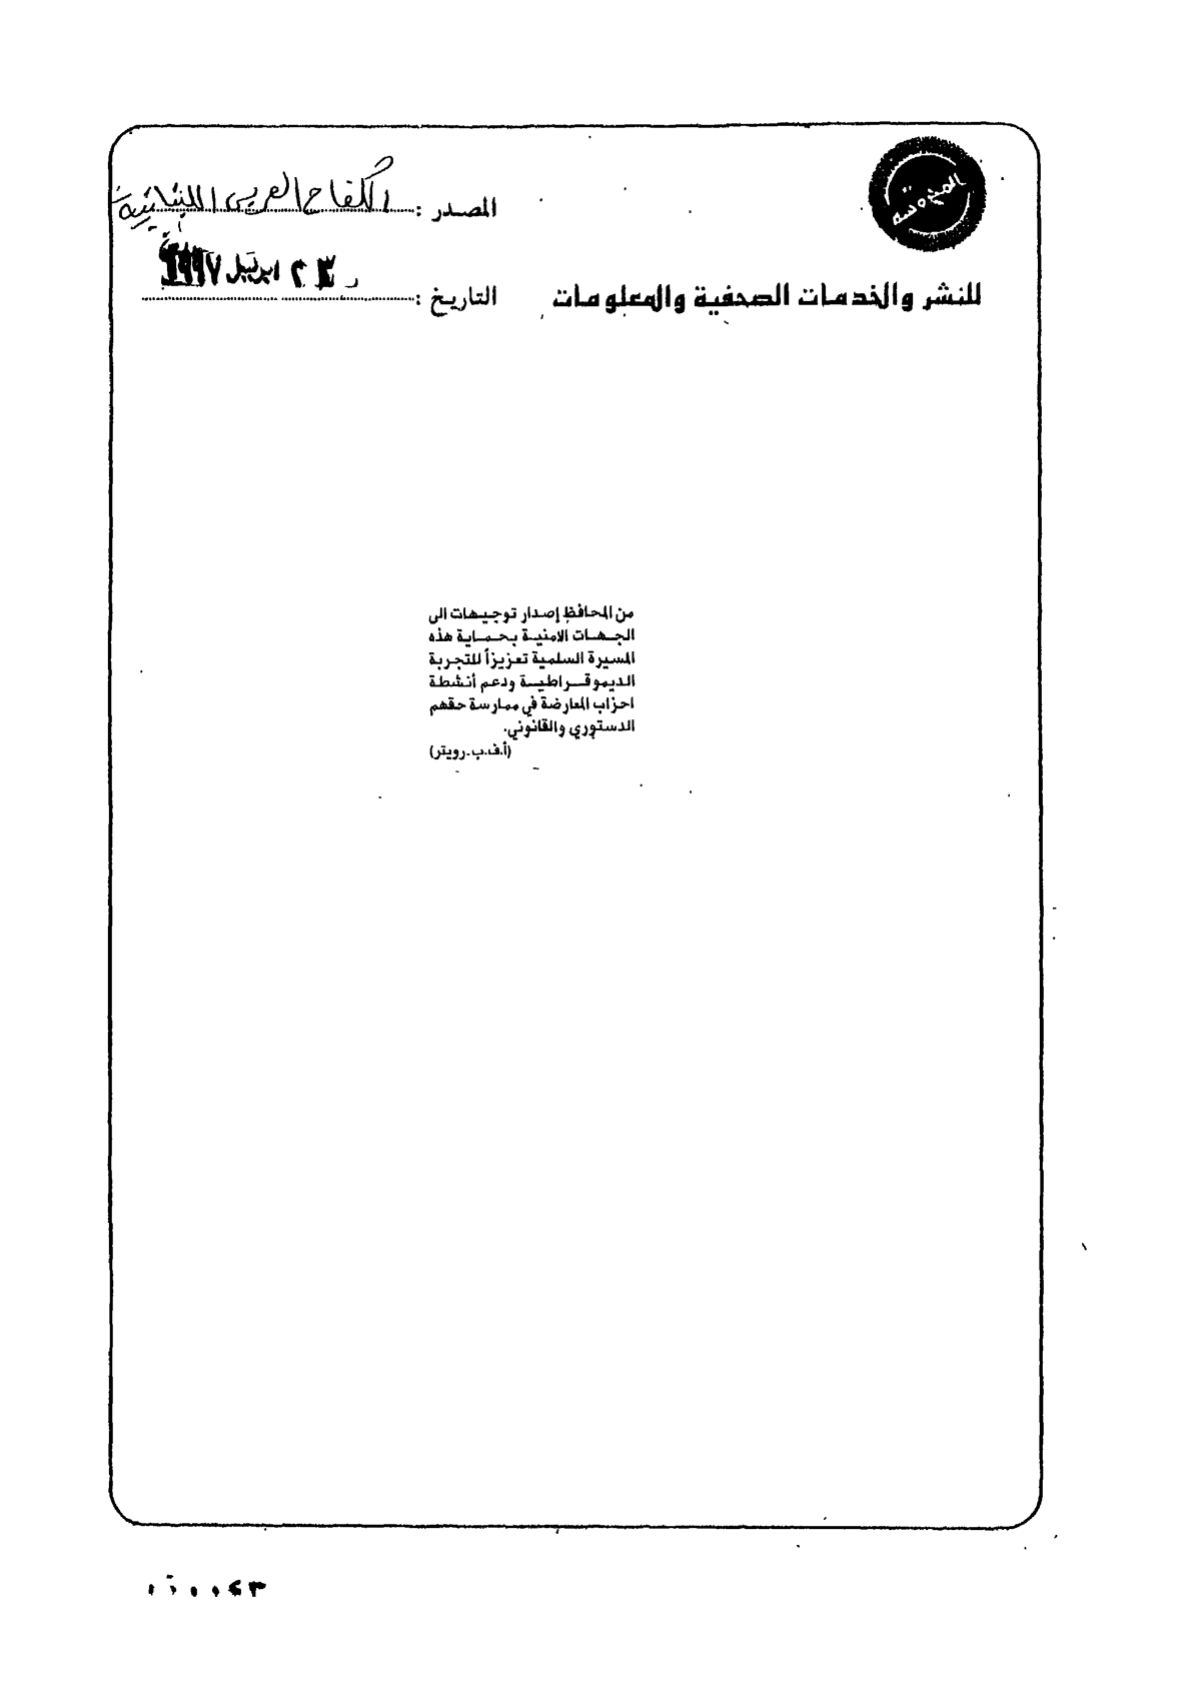 المحروسة
المصدر : الكفاح العربي اللبنانية
للنشر والخدمات الصحفية والمعلومات
التاريخ : ٢٣ ابريل ١٩٩٧
من المحافظ إصدار توجيهات الى
الجهات الامنية بحماية هذه
المسيرة السلمية تعزيزاً للتجربة
الديموقراطية ودعم أنشطة
احزاب المعارضة في ممارسة حقهم
الدستوري والقانوني.
(أ.ف.ب-رويتر)